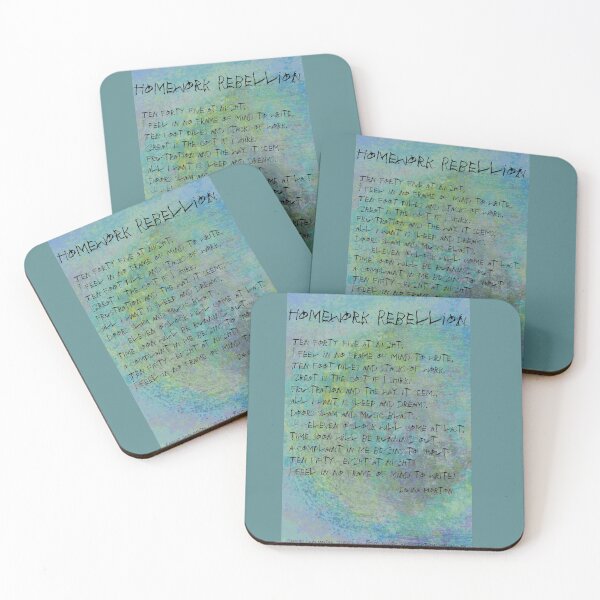 HOMEWORK REBELLION
TEN FORTY FIVE AT NIGHT,
I FEEL IN NO FRAME OF MIND TO WRITE,
TEN FOOT PILES AND STACK OF WORK,
GREAT IS THE COST IF I
FRUSTRATION AND THE WAY IT SEEMS,
ALL I WANT IS SLEEP AND DREAMS.
DOORS SLAM AND MUSIC
HOMEWORK REBELLION
TEN FORTY FIVE AT NIGHT,
I FEEL IN NO FRAME OF MIND TO WRITE,
TEN FOOT PILES AND STACK OF WORK,
GREAT IS THE COST IF I
FRUSTRATION AND THE WAY IT SEEMS,
ALL I WANT IS SLEEP AND DREAMS.
DOORS SLAM AND MUSIC
ELEVEN WILL COME AT LAST.
BE RUNNING OUT,
A COMPLAINT IN ME BEGINS TO SHOUT
TEN FIFTY EIGHT AT NIGHT!
FEEL IN NO FRAME OF MIND TO WRITE!
HOMEWORK REBELLION
TEN FORTY FIVE AT NIGHT,
I FEEL IN NO FRAME OF MIND TO WRITE,
TEN FOOT PILES AND STACK OF WORK,
GREAT IS THE COST IF I
FRUSTRATION AND THE WAY IT SEEMS,
ALL I WANT IS SLEEP AND DREAMS.
DOORS SLAM AND MUSIC
ELEVEN WILL COME AT
TIME SOON WILL BE RUNNING
A COMPLAINT IN ME
TEN FIFTY EIGHT AT NIGHT!
I FEEL IN NO FRAME OF
HOMEWORK REBELLION
TEN FORTY FIVE AT NIGHT,
I FEEL IN NO FRAME OF MIND TO WRITE,
TEN FOOT PILES AND STACK OF WORK,
GREAT IS THE COST IF I
FRUSTRATION AND THE WAY IT SEEMS,
ALL I WANT IS SLEEP AND DREAMS.
DOORS SLAM AND MUSIC
ELEVEN O CLOCK WILL COME AT LAST.
TIME SOON WILL BE RUNNING OUT,
A COMPLAINT IN ME BEGINS TO SHOUT
TEN FIFTY EIGHT AT NIGHT!
I FEEL IN NO FRAME OF MIND TO WRITE!
MORTON